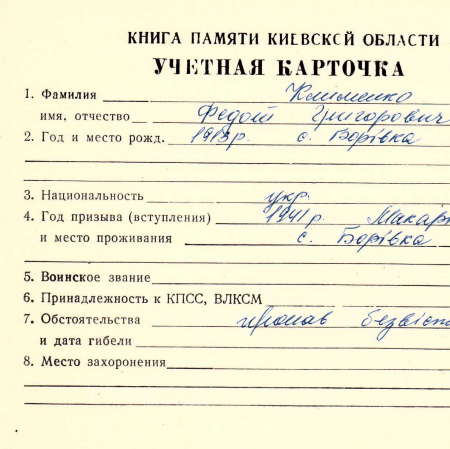 КНИГА ПАМЯТИ КИЕВСКОЙ ОБЛАСТИ
УЧЕТНАЯ КАРТОЧКА
1. Фамилия Кліменко
имя, отчество Федот Григорович
2. Год и место рожд. 1913р. с. Борівка
3. Национальность укр.
4. Год призыва (вступления) 1941 р. Макар
и место проживания с. Борівка
5. Воинское звание
6. Принадлежность к КПСС, ВЛКСМ
7. Обстоятельства пропав безвіст
и дата гибели
8. Место захоронения